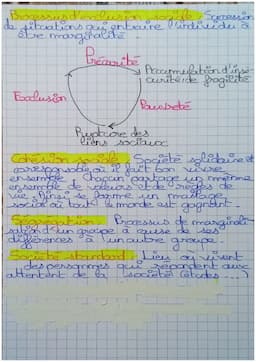 Processus d'exclusion sociale : Succession
de situations qui entraine l'individu à
être marginalité
Précarité
Accumulation d'insé-
curité de fragilité
Exclusion
Pauvreté
Rupture des
liens sociaux
Cohésion sociale : Société solidaire et
coresponsable où il fait bon vivre
ensemble. Chacun partage un même
ensemble de valeurs et de règles de
vie. Ainsi se forme un maillage
social où tout le monde est gagnant.
Ségrégation : Processus de marginali
sation d'un groupe à cause de ses
différences à un autre groupe.
Société standard : Lieu où vivent
des personnes qui répondent aux
attentent de la société (études ...)